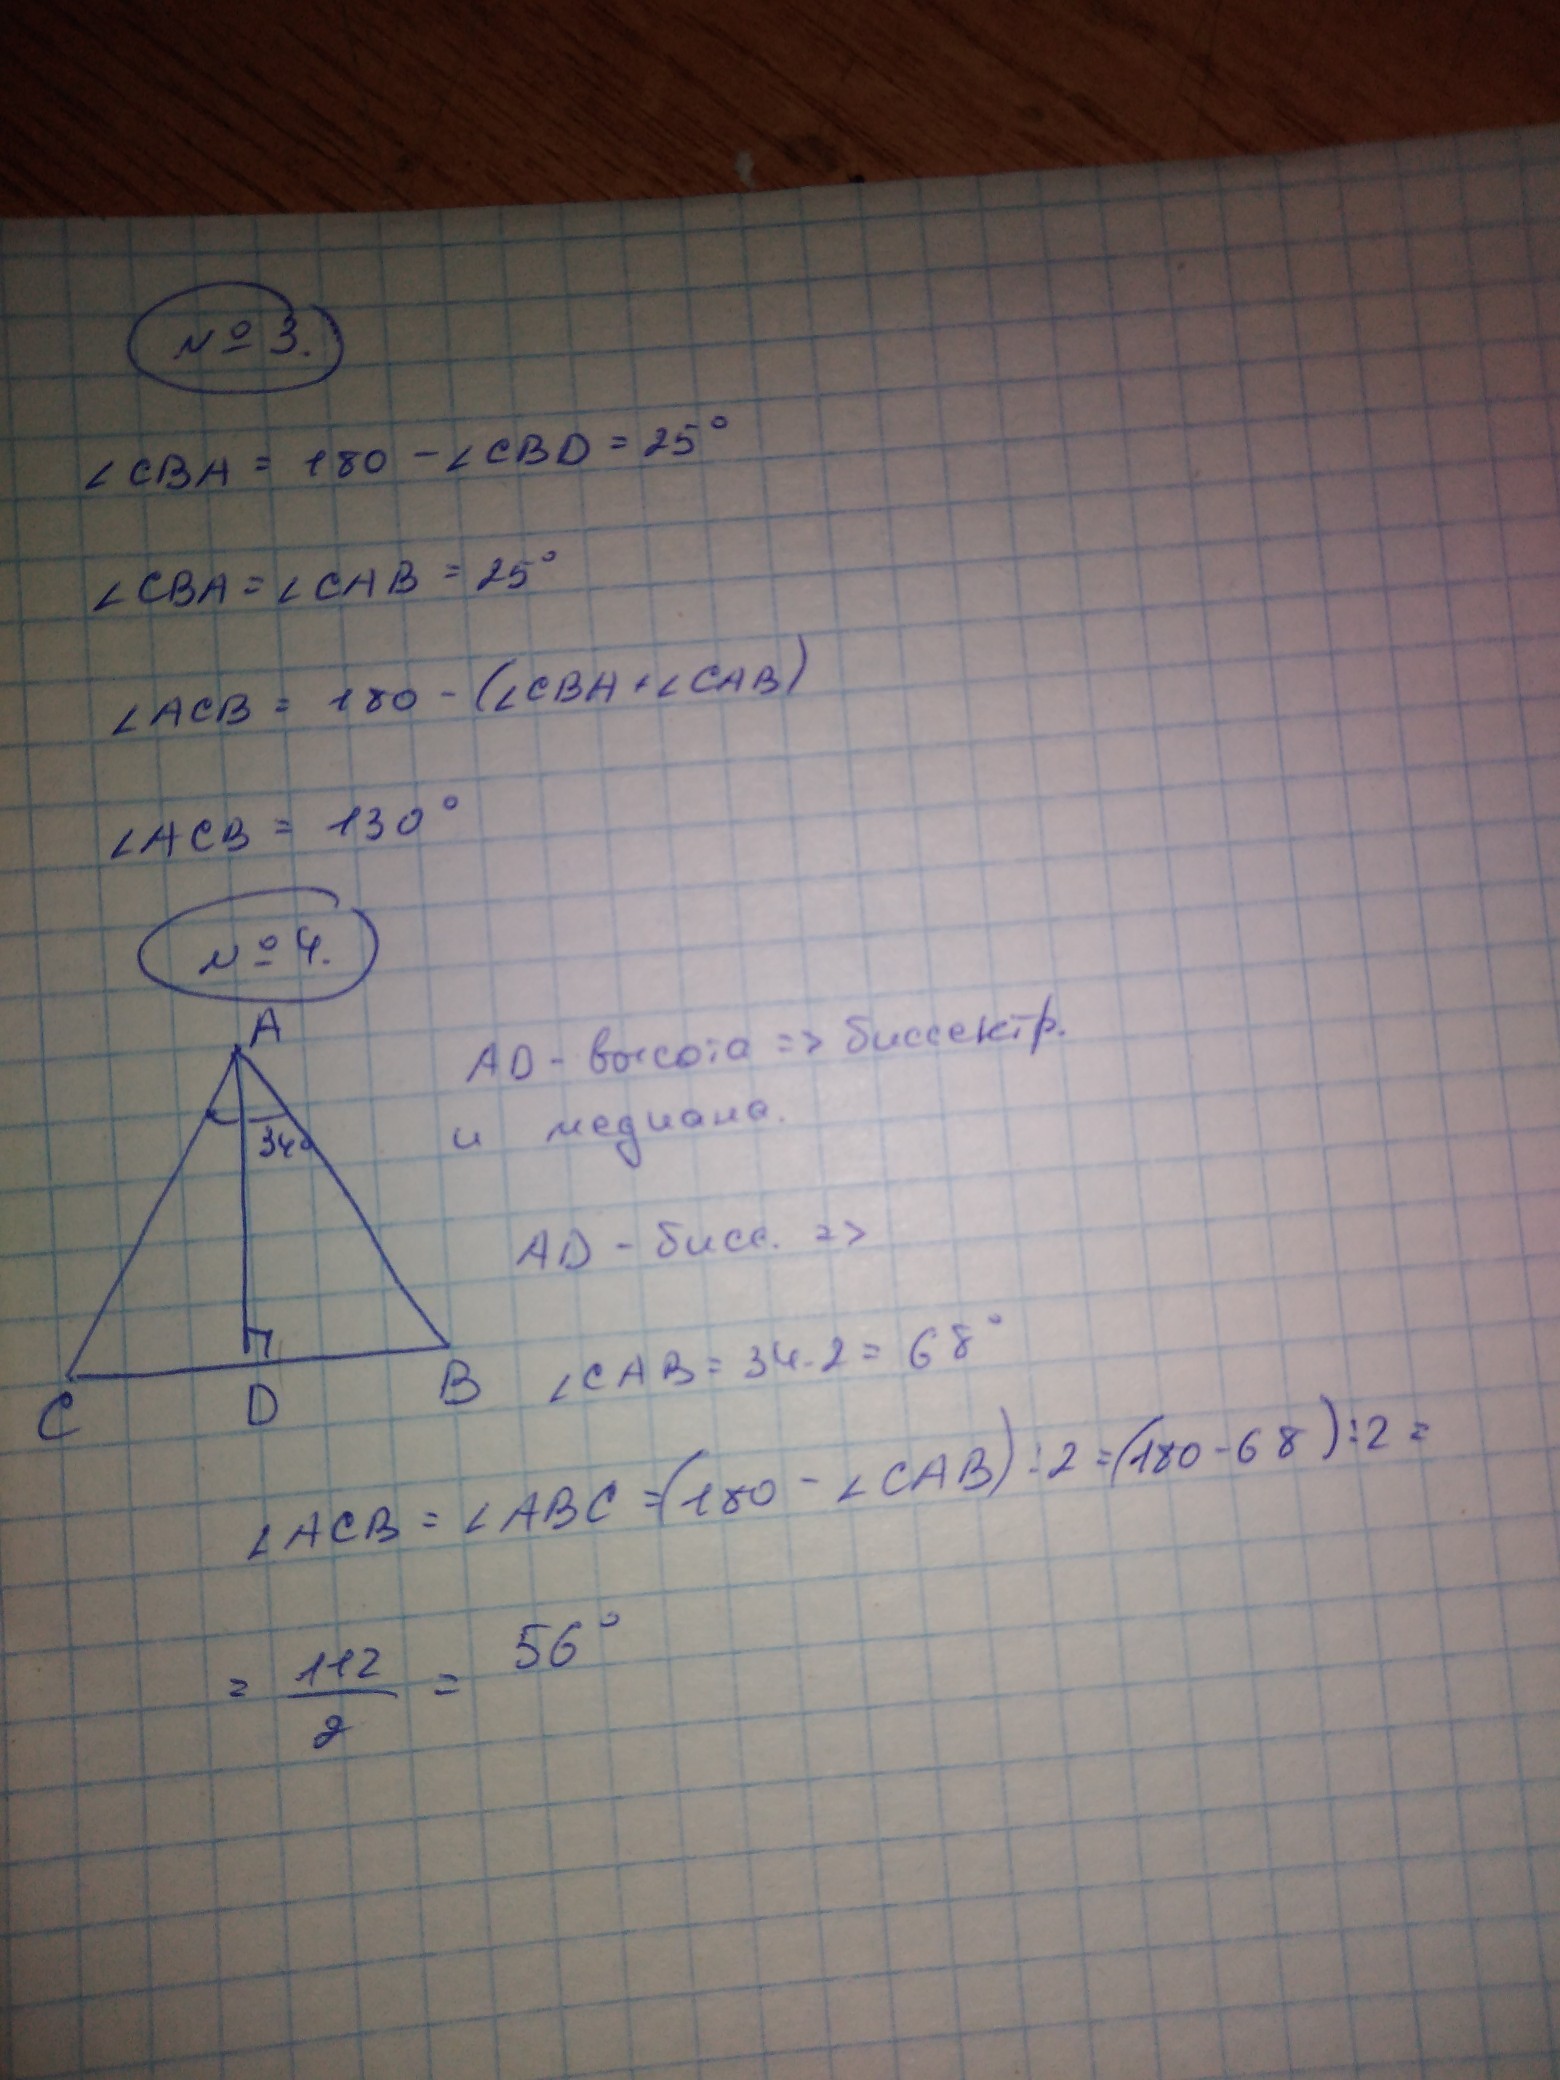 № 3.
∠CBA = 180 - ∠CBD = 25°
∠CBA = ∠CAB = 25°
∠ACB = 180 - (∠CBA + ∠CAB)
∠ACB = 130°
№ 4.
A
34°
C
D
B
AD - высота => биссектр.
и медиана.
AD - бисс. =>
∠CAB = 34·2 = 68°
∠ACB = ∠ABC = (180 - ∠CAB) : 2 = (180 - 68) : 2 =
= 112/2 = 56°